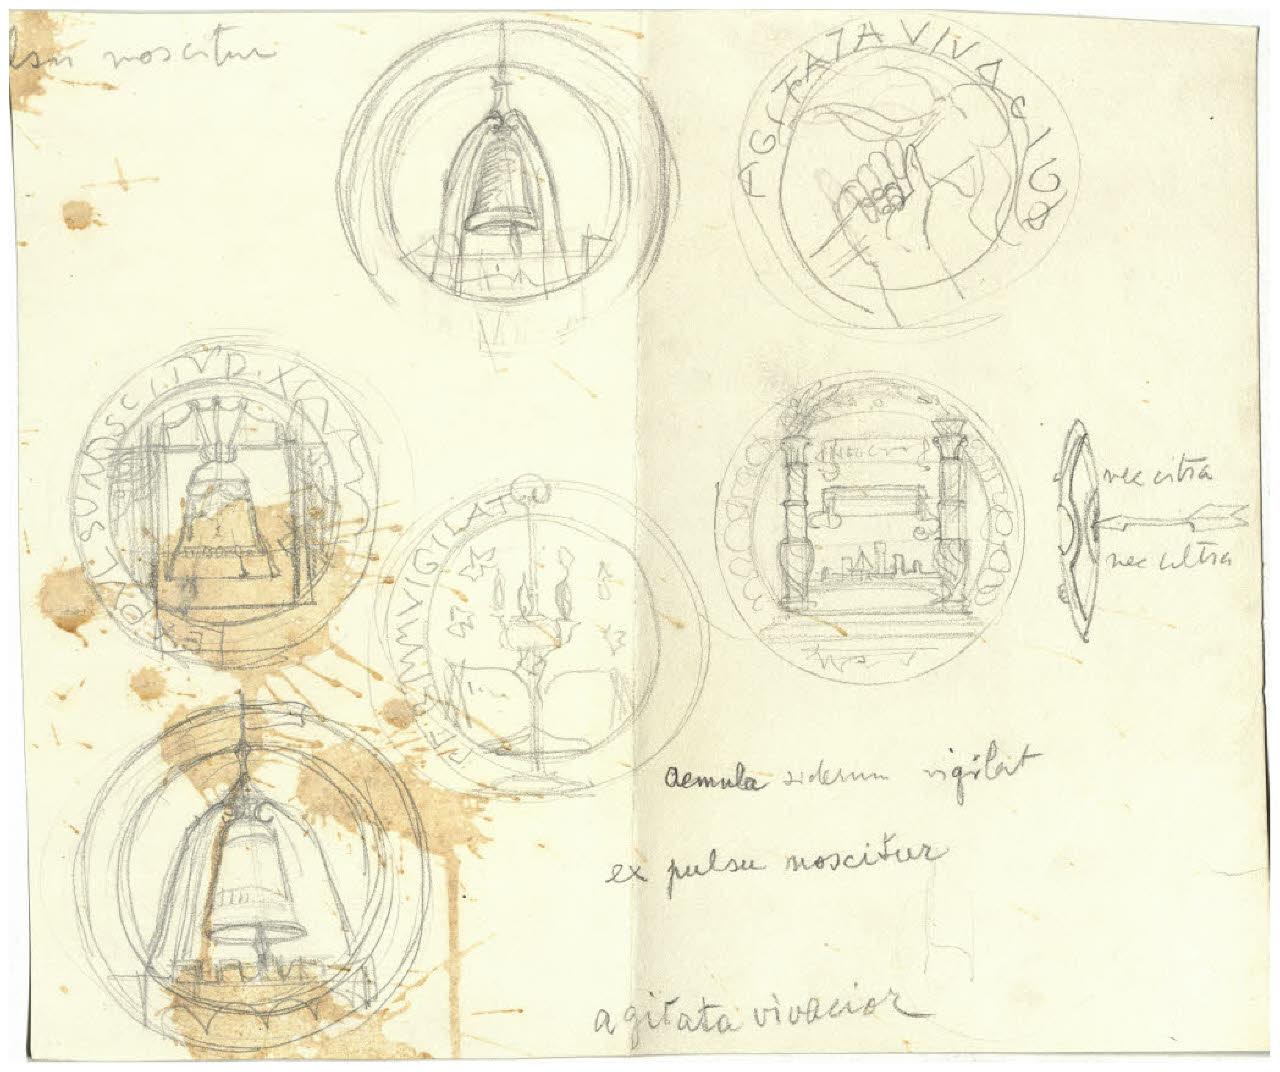 lsu noscitur
AGITATA VIVACIUR
EX PULSU NOSCITUR
PERUMUVIGILAT
nec citra
nec ultra
aemula siderum vigilat
ex pulsu noscitur
agitata vivacior